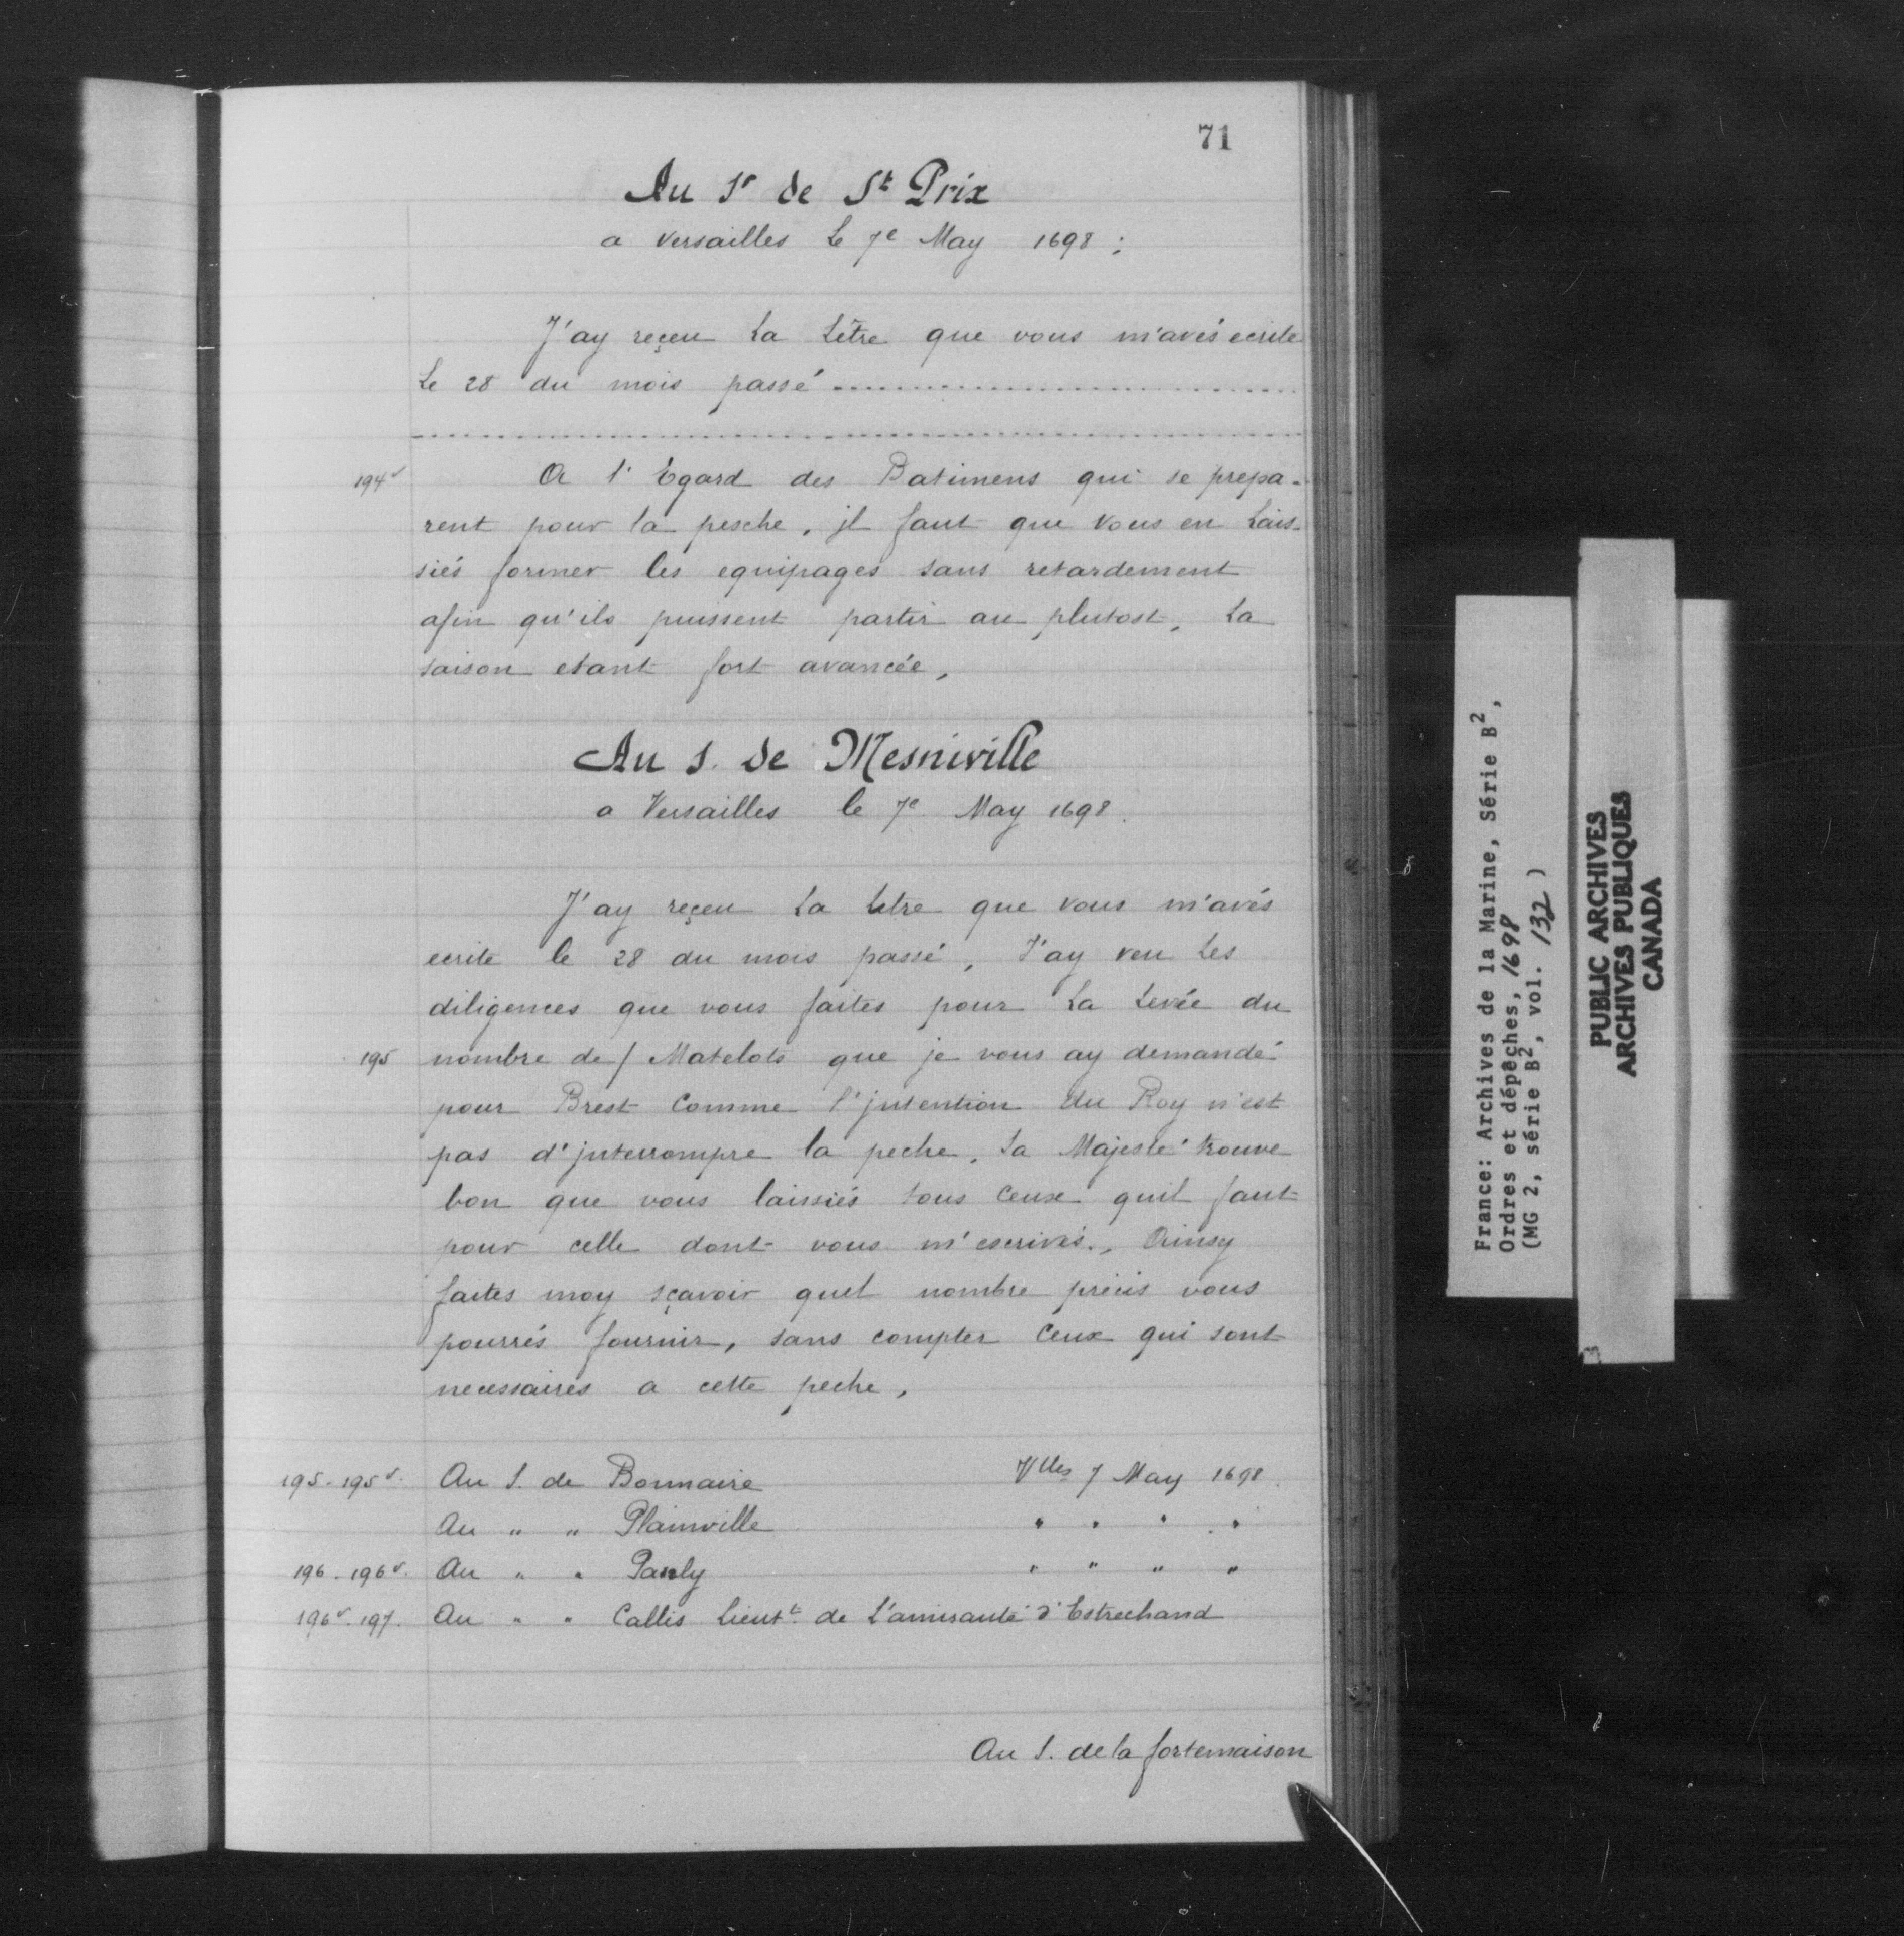 71
Au Sr de St Prix
a Versailles Le 7e May 1698 :
J'ay reçeu La Lêtre que vous m'avés ecrite
Le 28 du mois passé ........................
........................
194v A l'Egard des Batimens qui se prepa-
rent pour la pesche, jl faut que vous en Lais-
siés former les equipages sans retardement
afin qu'ils puissent partir au plutost, La
saison etant fort avancée,
Au S. de Mesniville
a Versailles le 7e May 1698.
J'ay reçeu La Letre que vous m'avés
ecrite le 28 du mois passé, J'ay veu Les
diligences que vous faites pour La Levée du
195 nombre de / Matelots que je vous ay demandé
pour Brest Comme l'jntention du Roy n'est
pas d'jnterrompre la peche, Sa Majesté trouve
bon que vous laissiés tous Ceux quil faut
pour celle dont vous m'escrivés., Ainsy
faites moy sçavoir quel nombre précis vous
pourrés fournir, sans compter Ceux qui sont
necessaires a cette peche,
195-195v. Au S. de Bonnaire Vlles 7 May 1698.
Au " " Plainville " " " "
196-196v. Au " " Pauly " " " "
196v-197. Au " " Callis Lieutt. de L'amirauté d'Estrechand
Au S. de la fortemaison
France: Archives de la Marine, Série B2,
Ordres et dépêches, 1698
(MG 2, série B2, vol. 132 )
PUBLIC ARCHIVES
ARCHIVES PUBLIQUES
CANADA